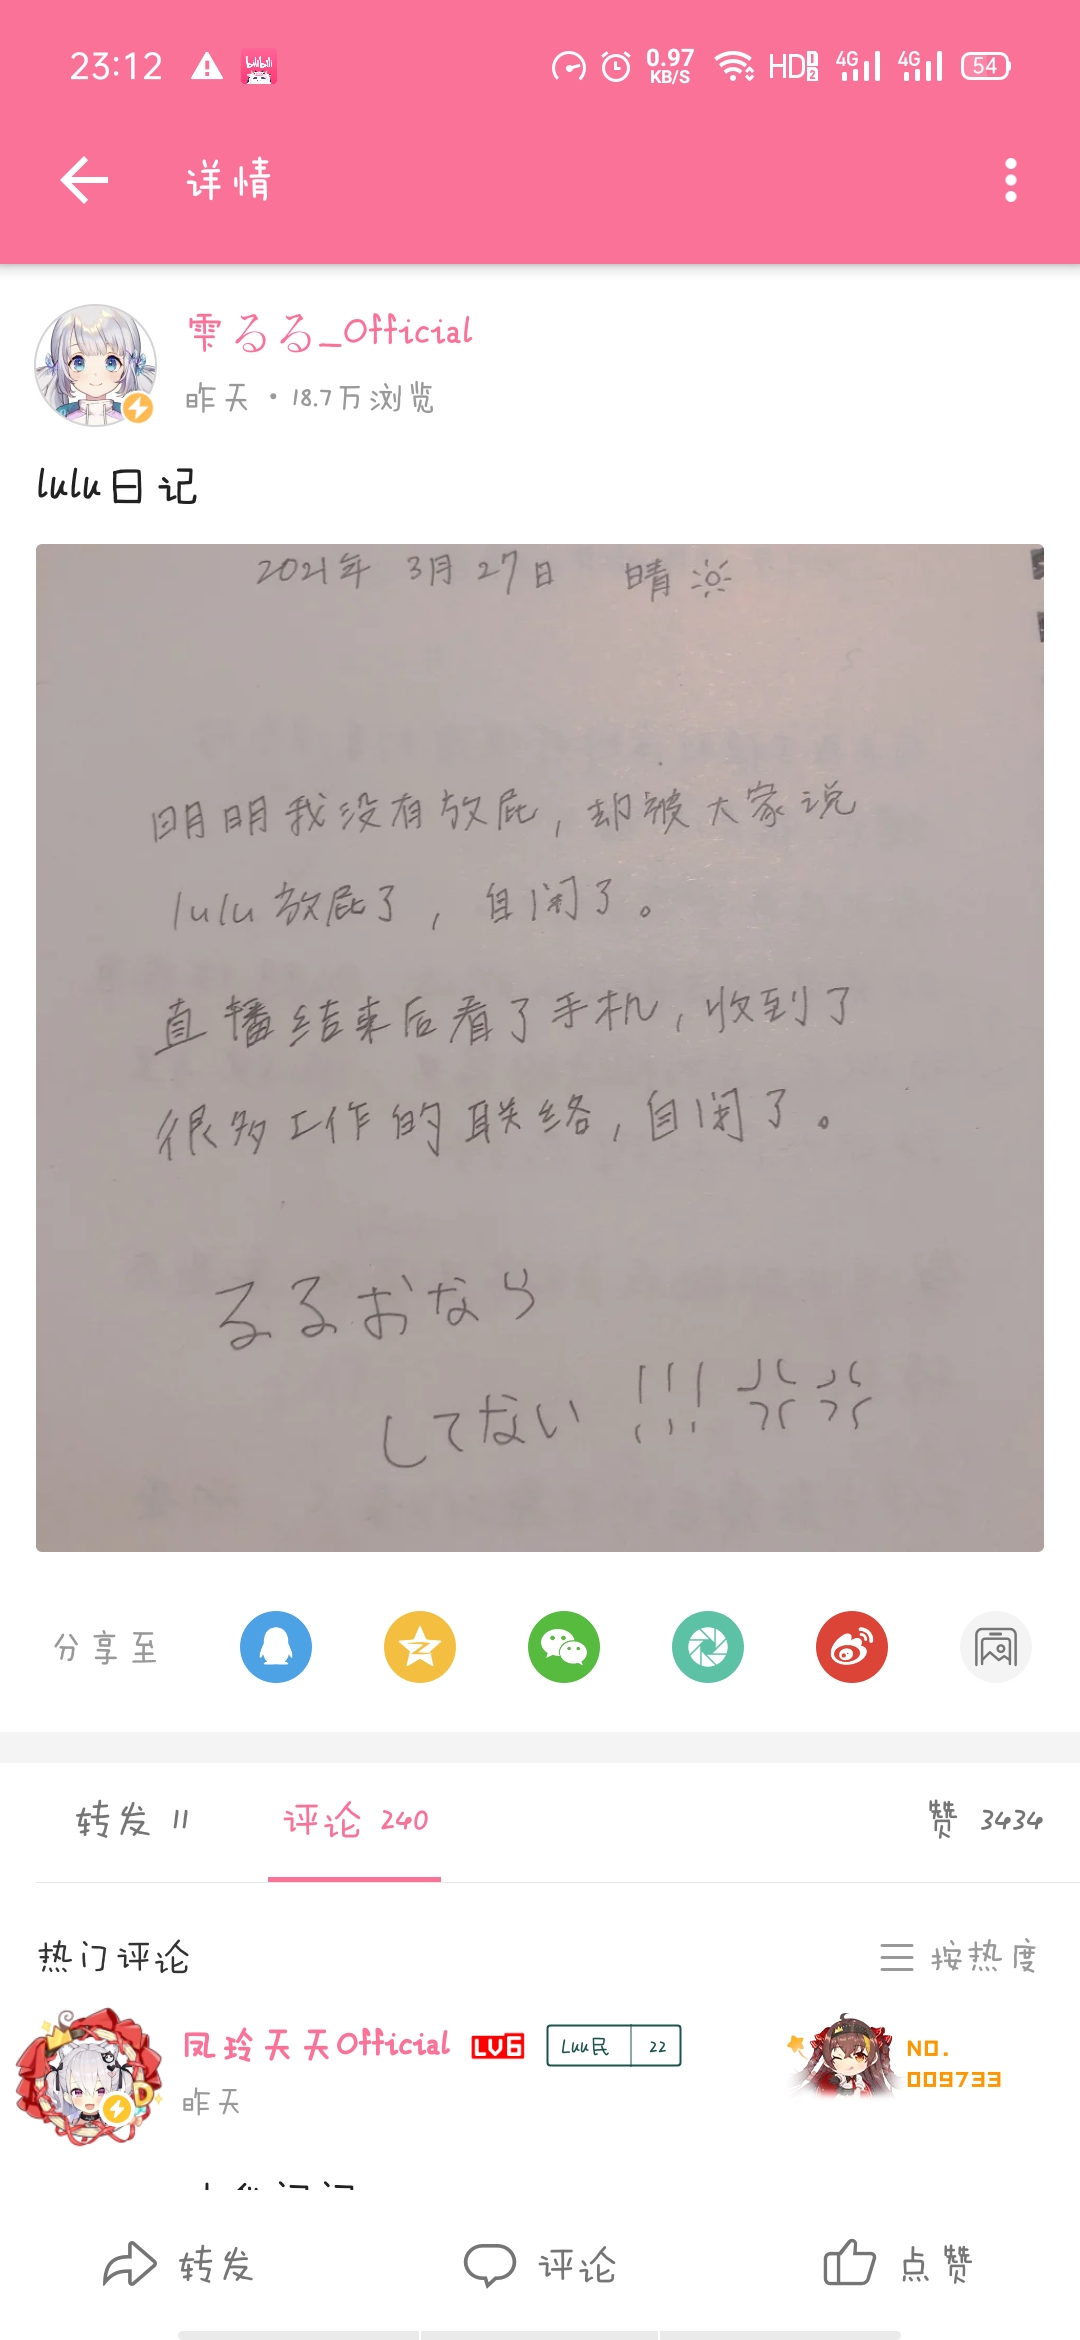 23:12
0.97
KB/S
HD 1 2
4G
4G
54
详情
雫るる_Official
昨天・18.7万浏览
lulu日记
2021年 3月27日 晴
明明我没有放屁,却被大家说
lulu放屁了,自闭了。
直播结束后看了手机,收到了
很多工作的联络,自闭了。
るるおなら
してない!!!
分享至
转发 11
评论 240
赞 3434
热门评论
按热度
凤玲天天Official
LV6
Luu民 22
NO.
009733
昨天
转发
评论
点赞